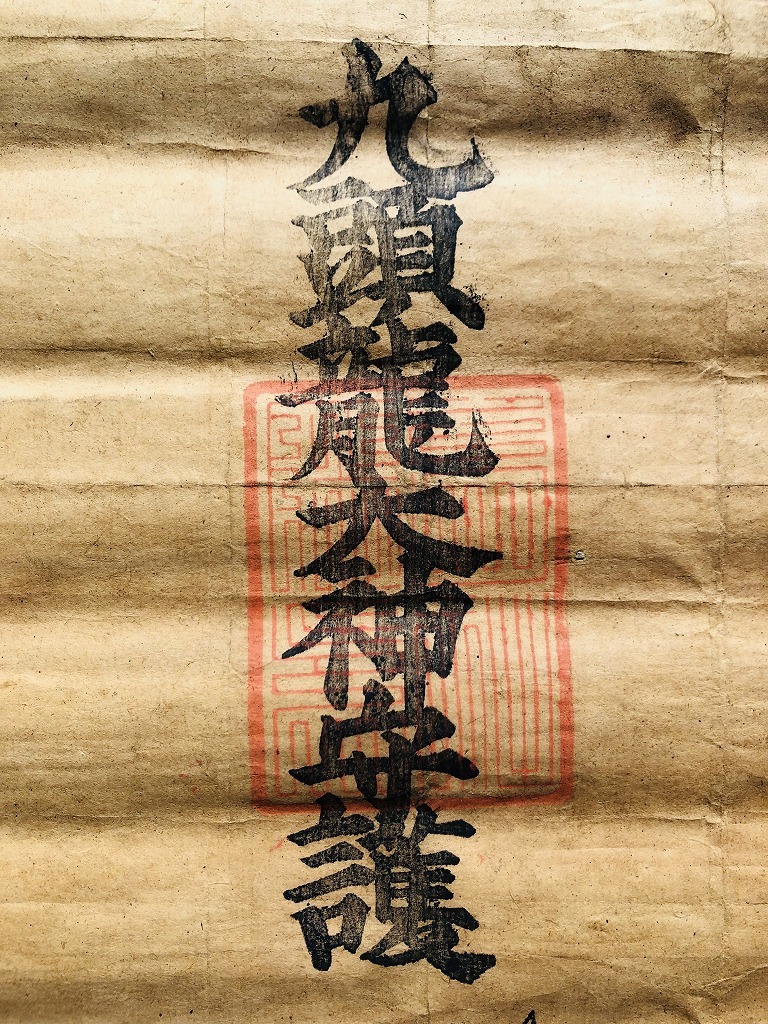 九頭龍大神守護